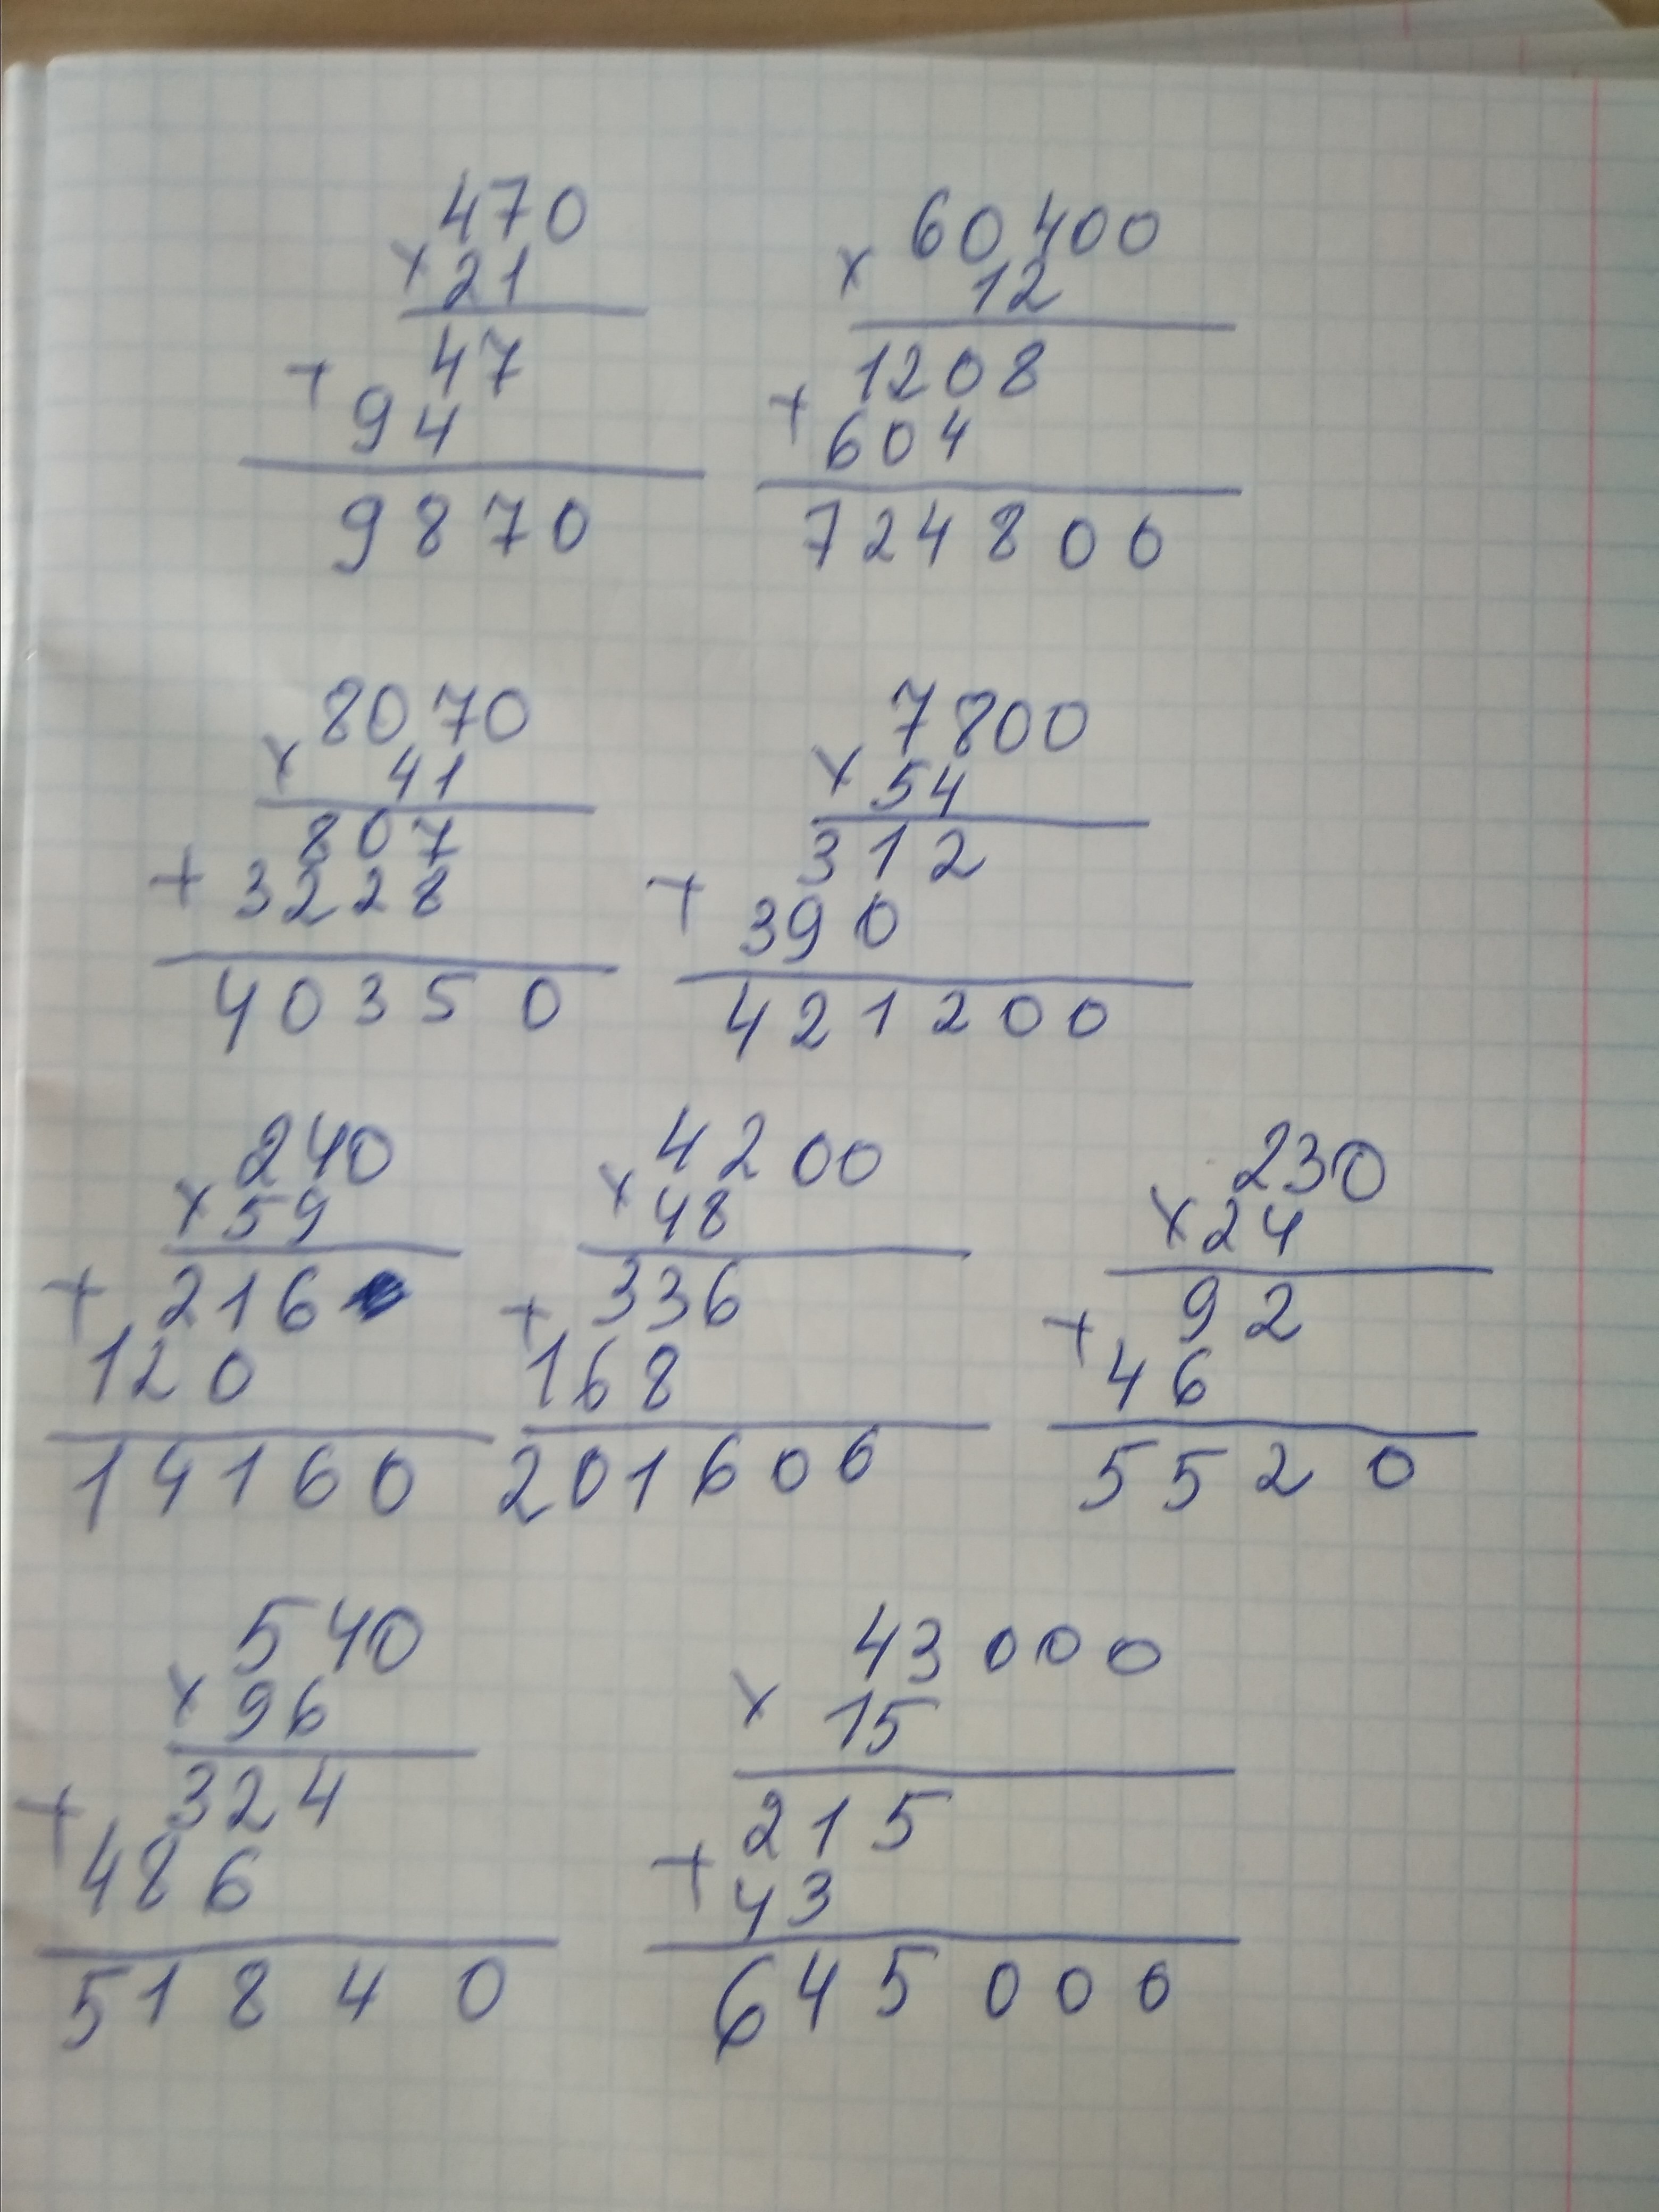 470
× 21
47
+ 94
9870
60400
× 12
1208
+ 604
724800
8070
× 41
807
+ 3228
40350
7800
× 54
312
+ 390
421200
240
× 59
+ 216
120
14160
4200
× 48
+ 336
168
201600
230
× 24
92
+ 46
5520
540
× 96
324
+ 486
51840
43000
× 15
215
+ 43
645000